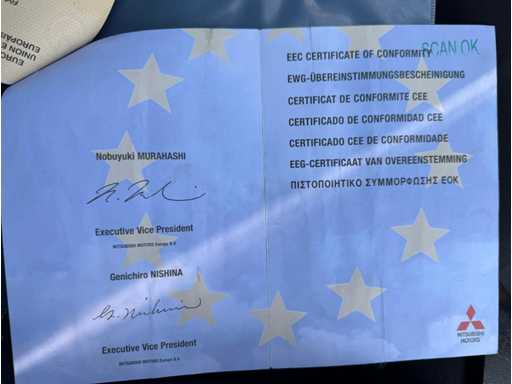 EUROPÄIS
UNION E
EUROP
Nobuyuki MURAHASHI
Executive Vice President
MITSUBISHI MOTORS Europe B.V.
Genichiro NISHINA
G. Nishina
Executive Vice President
MITSUBISHI MOTORS Europe B.V.
EEC CERTIFICATE OF CONFORMITY
SCAN OK
EWG-ÜBEREINSTIMMUNGSBESCHEINIGUNG
CERTIFICAT DE CONFORMITE CEE
CERTIFICADO DE CONFORMIDAD CEE
CERTIFICADO CEE DE CONFORMIDADE
EEG-CERTIFICAAT VAN OVEREENSTEMMING
ΠΙΣΤΟΠΟΙΗΤΙΚΟ ΣΥΜΜΟΡΦΩΣΗΣ ΕΟΚ
MITSUBISHI
MOTORS